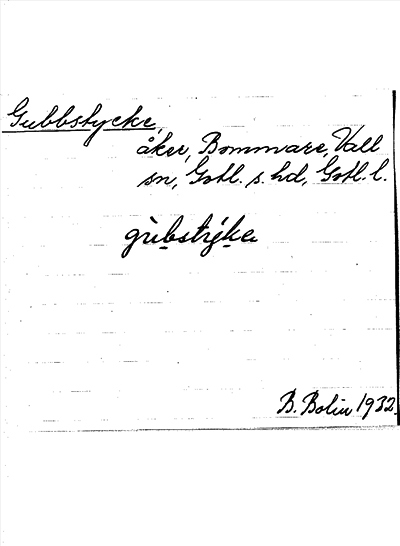 Gubbstycke,
åker, Bommare, Vall
sn, Gotl. s. hd, Gotl. l.
gùbstýke
B. Bolin 1932.